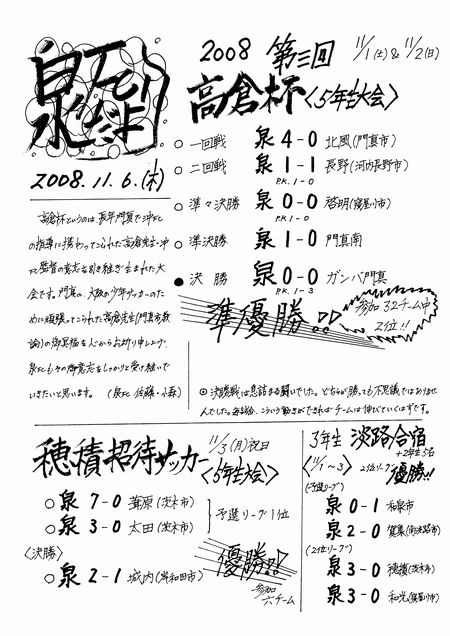 泉FCだより
2008.11.6.(木)
2008 第三回 11/1(土)&11/2(日)
高倉杯<5年生大会>
○一回戦 泉4-0北岡(門真市)
○二回戦 泉1-1長野(河内長野市)
P.K. 1-0
○準々決勝 泉0-0啓明(寝屋川市)
P.K 1-0
○準決勝 泉1-0門真南
●決勝 泉0-0ガンバ門真
P.K. 1-3
準優勝!!
参加32チーム中
2位!!
高倉杯というのは、長年門真で
の指導に携わってこられた高倉先生
監督の意志を引き継ぎ生まれた大
会です。門真の、大阪の少年サッカーのた
めに頑張ってこられた高倉先生(門真市教
諭)の御冥福を心からお祈り申し上げ、
泉FCも々の御意志をしっかりと受け継いで
いきたいと思います。(泉FC 佐藤・小森)
⊙決勝戦は息詰まる闘いでした。どちらが勝っても不思議ではありませ
んでした。毎試合、こういう動きができればチームは伸びていくはずです。
穂積招待サッカー 11/3(月)祝日
<5年生大会>
○泉7-0葦原(茨木市)
○泉3-0太田(茨木市)
予選リーグ1位
<決勝>
○泉2-1城内(岸和田市)
優勝!!
参加
六チーム
3年生 淡路合宿
+2年生5名
<11/1~3> 2位リーグ優勝!!
(予選リーグ)
泉0-1和泉市
泉2-0賀集(南淡路市)
(2位リーグ)
泉3-0穂積(茨木市)
泉3-0和光(寝屋川市)